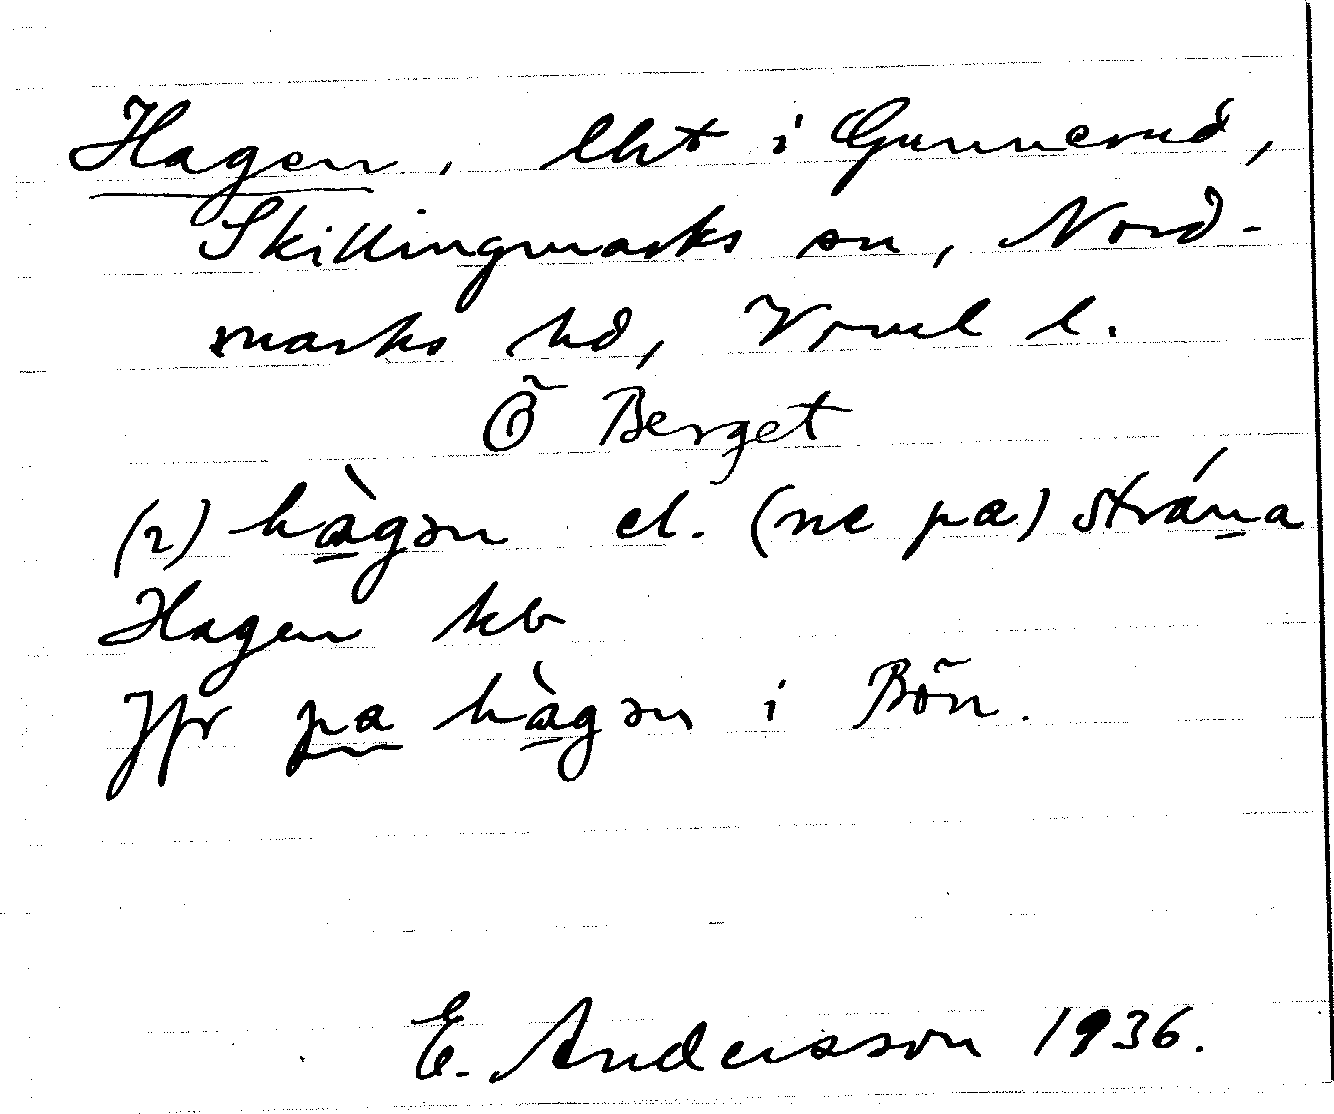 Hagen, lht i Gunnerud,
Skillingmarks sn, Nord-
marks hd, Vrml l.
Ö Berget
(2) hàgən el. (ne pa) strána
Hagen kb
Jfr pa hàgən i Bön.
E. Andersson 1936.